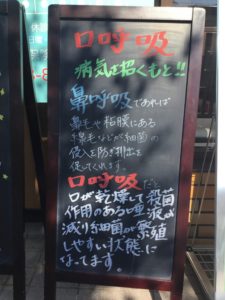 口呼吸
病気を招くもと!!
鼻呼吸であれば
鼻毛や粘膜にある
せん毛などが細菌の
侵入を防ぎ排出を
促してくれます。
口呼吸だと
口が乾燥して殺菌
作用のある唾液が
減り細菌が繁殖
しやすい状態に
なってます。